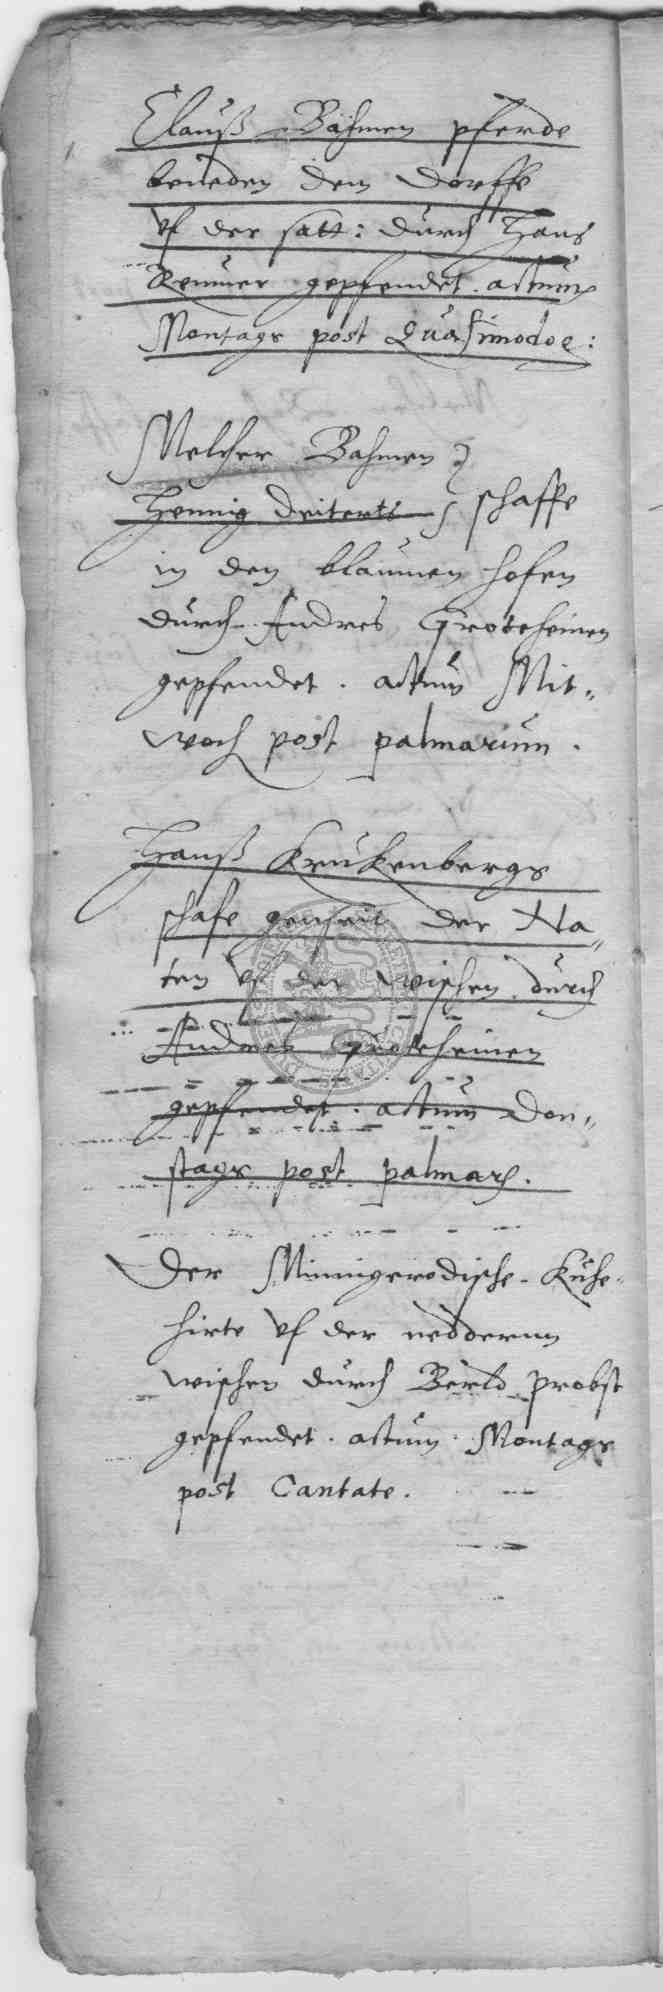 Clauß Bahmen pferde
beneden dem dorffe
vf der satt: durch Hans
Kenner gepfendet. actum
Montags post Quasimodoe:
Melcher Bahmen }
Hennig Deiterts } schaffe
in den blaumen hofen
durch Andres Groteheinen
gepfendet. actum Mit„
woch post palmarum.
Hanß Krukenbergs
schafe genseit der Na„
ten vf der wischen durch
Andres Groteheinen
gepfendet. actum Don„
stags post palmar.
Der Minnigerodische Kuhe„
hirte vf der neddernn
wischen durch Bertd Probst
gepfendet. actum. Montags
post Cantate.